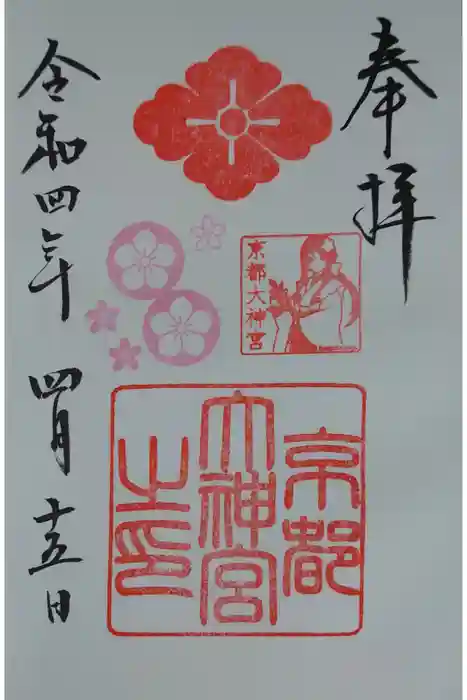 奉拝
京都大神宮
京都
大神宮
之印
令和四年 四月 十五日